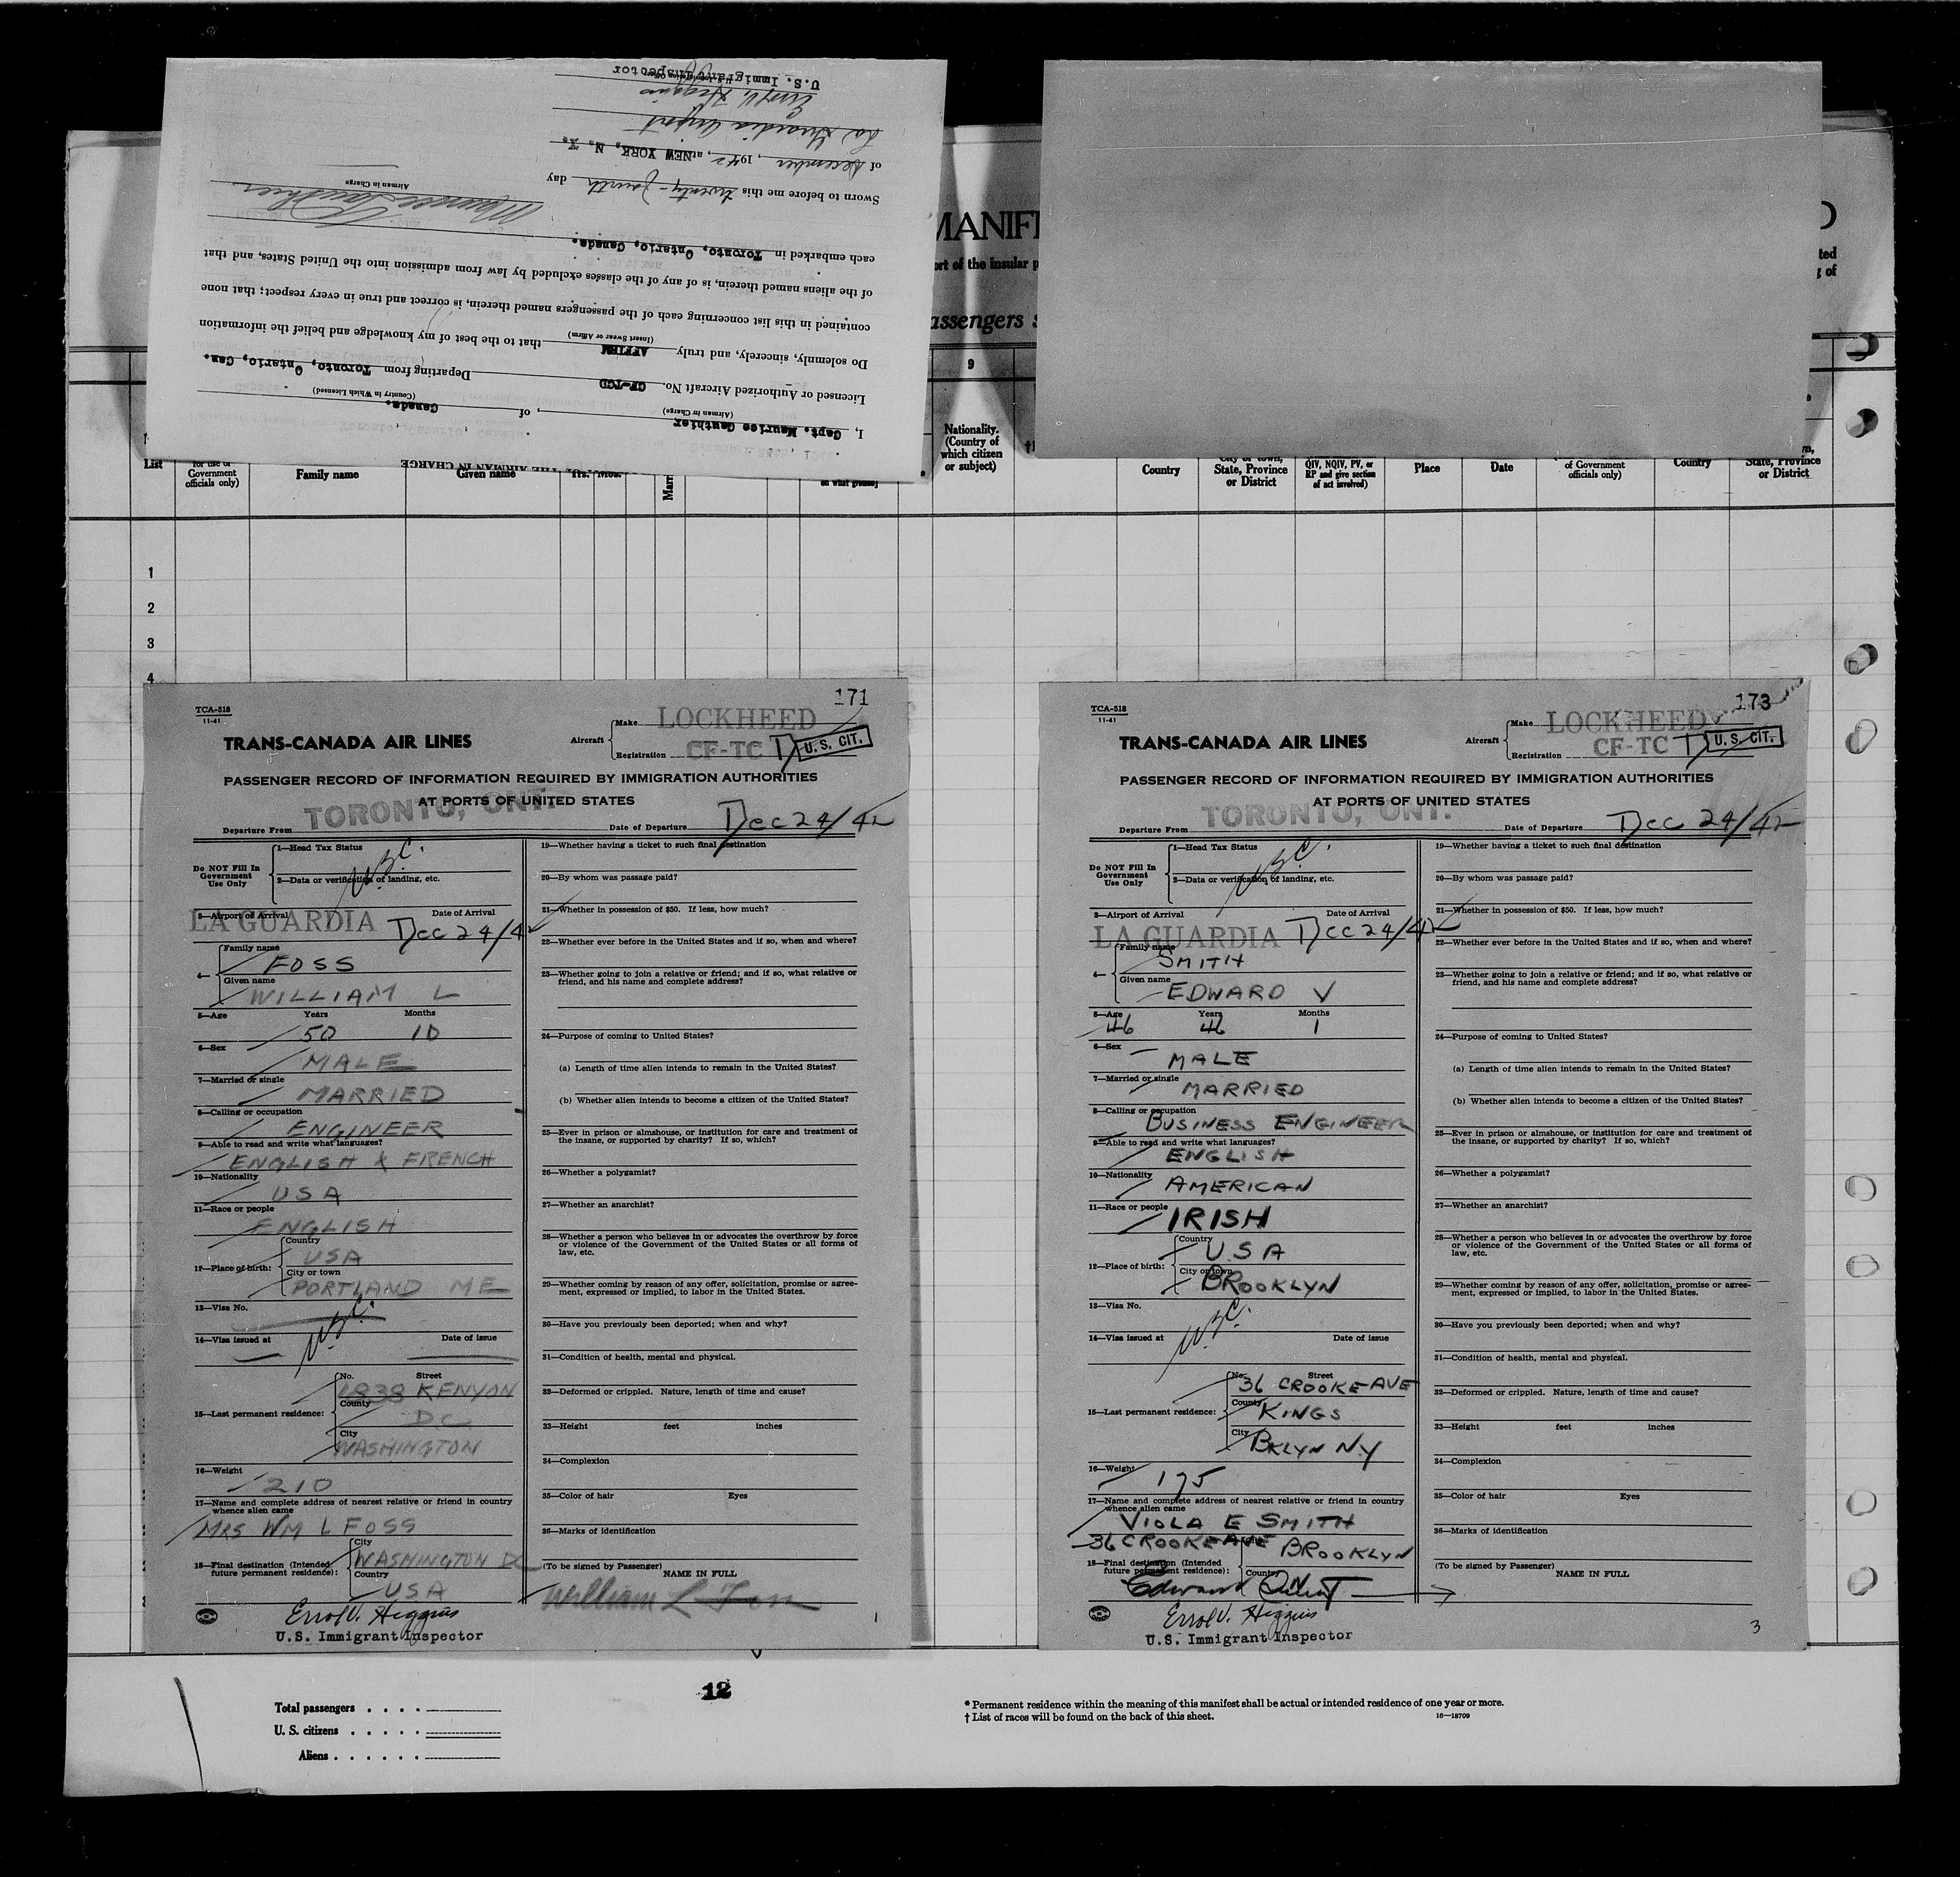 I, Capt. Maurice Gauthier, of Canada.
(Airman in Charge) (Country in Which Licensed)
Licensed or Authorized Aircraft No. CF-TCD Departing from Toronto, Ontario, Can.
Do solemnly, sincerely, and truly AFFIRM that to the best of my knowledge and belief the information
(Insert Swear or Affirm)
contained in this list concerning each of the passengers named therein, is correct and true in every respect; that none
of the aliens named therein, is of any of the classes excluded by law from admission into the United States, and that
each embarked in Toronto, Ontario, Canada.
Maurice Gauthier
Airman in Charge
Sworn to before me this twenty-fourth day
of December, 1942, at NEW YORK, N. Y.
La Guardia Airport
Errol V. Higgins
U.S. Immigrant Inspector
MANIF
ort of the insular p
assengers s
ted
g of
9
List
for use of
Government
officials only)
Family name
Given name
Yrs. Mos.
Nationality.
(Country of
which citizen
or subject)
Country
City or town,
State, Province
or District
QIV, NQIV, PV, or
RP and give section
of act involved)
Place
Date
of Government
officials only)
Country
State, Province
or District
1
2
3
4
171
TCA-518
11-41
TRANS-CANADA AIR LINES
Aircraft
Make LOCKHEED
Registration CF-TC D
U. S. CIT.
PASSENGER RECORD OF INFORMATION REQUIRED BY IMMIGRATION AUTHORITIES
AT PORTS OF UNITED STATES
Departure From TORONTO, ONT.
Date of Departure Dec 24/42
Do NOT Fill In
Government
Use Only
1—Head Tax Status
2—Data or verification of landing, etc.
3—Airport of Arrival Date of Arrival
LA GUARDIA Dec 24/42
4—
Family name
FOSS
Given name
WILLIAM L
5—Age Years Months
50 10
6—Sex
MALE
7—Married or single
MARRIED
8—Calling or occupation
ENGINEER
9—Able to read and write what languages?
ENGLISH & FRENCH
10—Nationality
USA
11—Race or people
ENGLISH
12—Place of birth:
Country
USA
City or town
PORTLAND ME
13—Visa No.
14—Visa issued at Date of issue
15—Last permanent residence:
No. Street
1838 KENYON
County
DC
City
WASHINGTON
16—Weight
210
17—Name and complete address of nearest relative or friend in country
whence alien came
MRS WM L FOSS
18—Final destination (Intended
future permanent residence):
City
WASHINGTON DC
Country
USA
Errol V. Higgins
U.S. Immigrant Inspector
19—Whether having a ticket to such final destination
20—By whom was passage paid?
21—Whether in possession of $50. If less, how much?
22—Whether ever before in the United States and if so, when and where?
23—Whether going to join a relative or friend; and if so, what relative or
friend, and his name and complete address?
24—Purpose of coming to United States?
(a) Length of time alien intends to remain in the United States?
(b) Whether alien intends to become a citizen of the United States?
25—Ever in prison or almshouse, or institution for care and treatment of
the insane, or supported by charity? If so, which?
26—Whether a polygamist?
27—Whether an anarchist?
28—Whether a person who believes in or advocates the overthrow by force
or violence of the Government of the United States or all forms of
law, etc.
29—Whether coming by reason of any offer, solicitation, promise or agree-
ment, expressed or implied, to labor in the United States.
30—Have you previously been deported; when and why?
31—Condition of health, mental and physical.
32—Deformed or crippled. Nature, length of time and cause?
33—Height feet inches
34—Complexion
35—Color of hair Eyes
36—Marks of identification
(To be signed by Passenger) NAME IN FULL
William L Foss
1
173
TCA-518
11-41
TRANS-CANADA AIR LINES
Aircraft
Make LOCKHEED
Registration CF-TC D
U. S. CIT.
PASSENGER RECORD OF INFORMATION REQUIRED BY IMMIGRATION AUTHORITIES
AT PORTS OF UNITED STATES
Departure From TORONTO, ONT.
Date of Departure Dec 24/42
Do NOT Fill In
Government
Use Only
1—Head Tax Status
2—Data or verification of landing, etc.
3—Airport of Arrival Date of Arrival
LA GUARDIA Dec 24/42
4—
Family name
SMITH
Given name
EDWARD V
5—Age Years Months
46 46 1
6—Sex
MALE
7—Married or single
MARRIED
8—Calling or occupation
BUSINESS ENGINEER
9—Able to read and write what languages?
ENGLISH
10—Nationality
AMERICAN
11—Race or people
IRISH
12—Place of birth:
Country
USA
City or town
BROOKLYN
13—Visa No.
14—Visa issued at Date of issue
15—Last permanent residence:
No. Street
36 CROOKE AVE
County
KINGS
City
BKLYN N.Y
16—Weight
175
17—Name and complete address of nearest relative or friend in country
whence alien came
VIOLA E SMITH
36 CROOKE AVE BROOKLYN
18—Final destination (Intended
future permanent residence):
Country
Edward
Errol V. Higgins
U.S. Immigrant Inspector
19—Whether having a ticket to such final destination
20—By whom was passage paid?
21—Whether in possession of $50. If less, how much?
22—Whether ever before in the United States and if so, when and where?
23—Whether going to join a relative or friend; and if so, what relative or
friend, and his name and complete address?
24—Purpose of coming to United States?
(a) Length of time alien intends to remain in the United States?
(b) Whether alien intends to become a citizen of the United States?
25—Ever in prison or almshouse, or institution for care and treatment of
the insane, or supported by charity? If so, which?
26—Whether a polygamist?
27—Whether an anarchist?
28—Whether a person who believes in or advocates the overthrow by force
or violence of the Government of the United States or all forms of
law, etc.
29—Whether coming by reason of any offer, solicitation, promise or agree-
ment, expressed or implied, to labor in the United States.
30—Have you previously been deported; when and why?
31—Condition of health, mental and physical.
32—Deformed or crippled. Nature, length of time and cause?
33—Height feet inches
34—Complexion
35—Color of hair Eyes
36—Marks of identification
(To be signed by Passenger) NAME IN FULL
3
12
Total passengers
U. S. citizens
Aliens
* Permanent residence within the meaning of this manifest shall be actual or intended residence of one year or more.
† List of races will be found on the back of this sheet.
16—18709